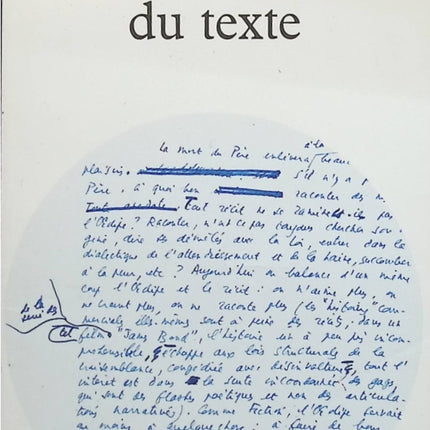 du texte
à la
La mort du Père enlèvera beau
plaisirs. S'il n'y a p
Père, à quoi bon raconter des
Tout récit ne se ramène-t-il pas
l'Œdipe ? Raconter, n'est-ce pas toujours chercher son
gine, dire ses démêlés avec la Loi, entrer dans la
dialectique de l'attendrissement et de la haine,
à la peur, etc. ? Aujourd'hui on balance d'un même
coup l'Œdipe et le récit : on n'aime plus, on
ne craint plus, on ne raconte plus (les "histoires" com-
merciales elles-mêmes sont à peine des récits, dans un
de la
série des
film "James Bond", l'histoire est à peu près incom-
préhensible, échappe aux lois structurales de la
vraisemblance, avec désinvolture, tout l'
intérêt est dans la suite des gags,
qui sont des flashs poétiques et non des articula-
tions narratives). Comme fiction, l'Œdipe servait
au moins à quelque chose : à faire de bons